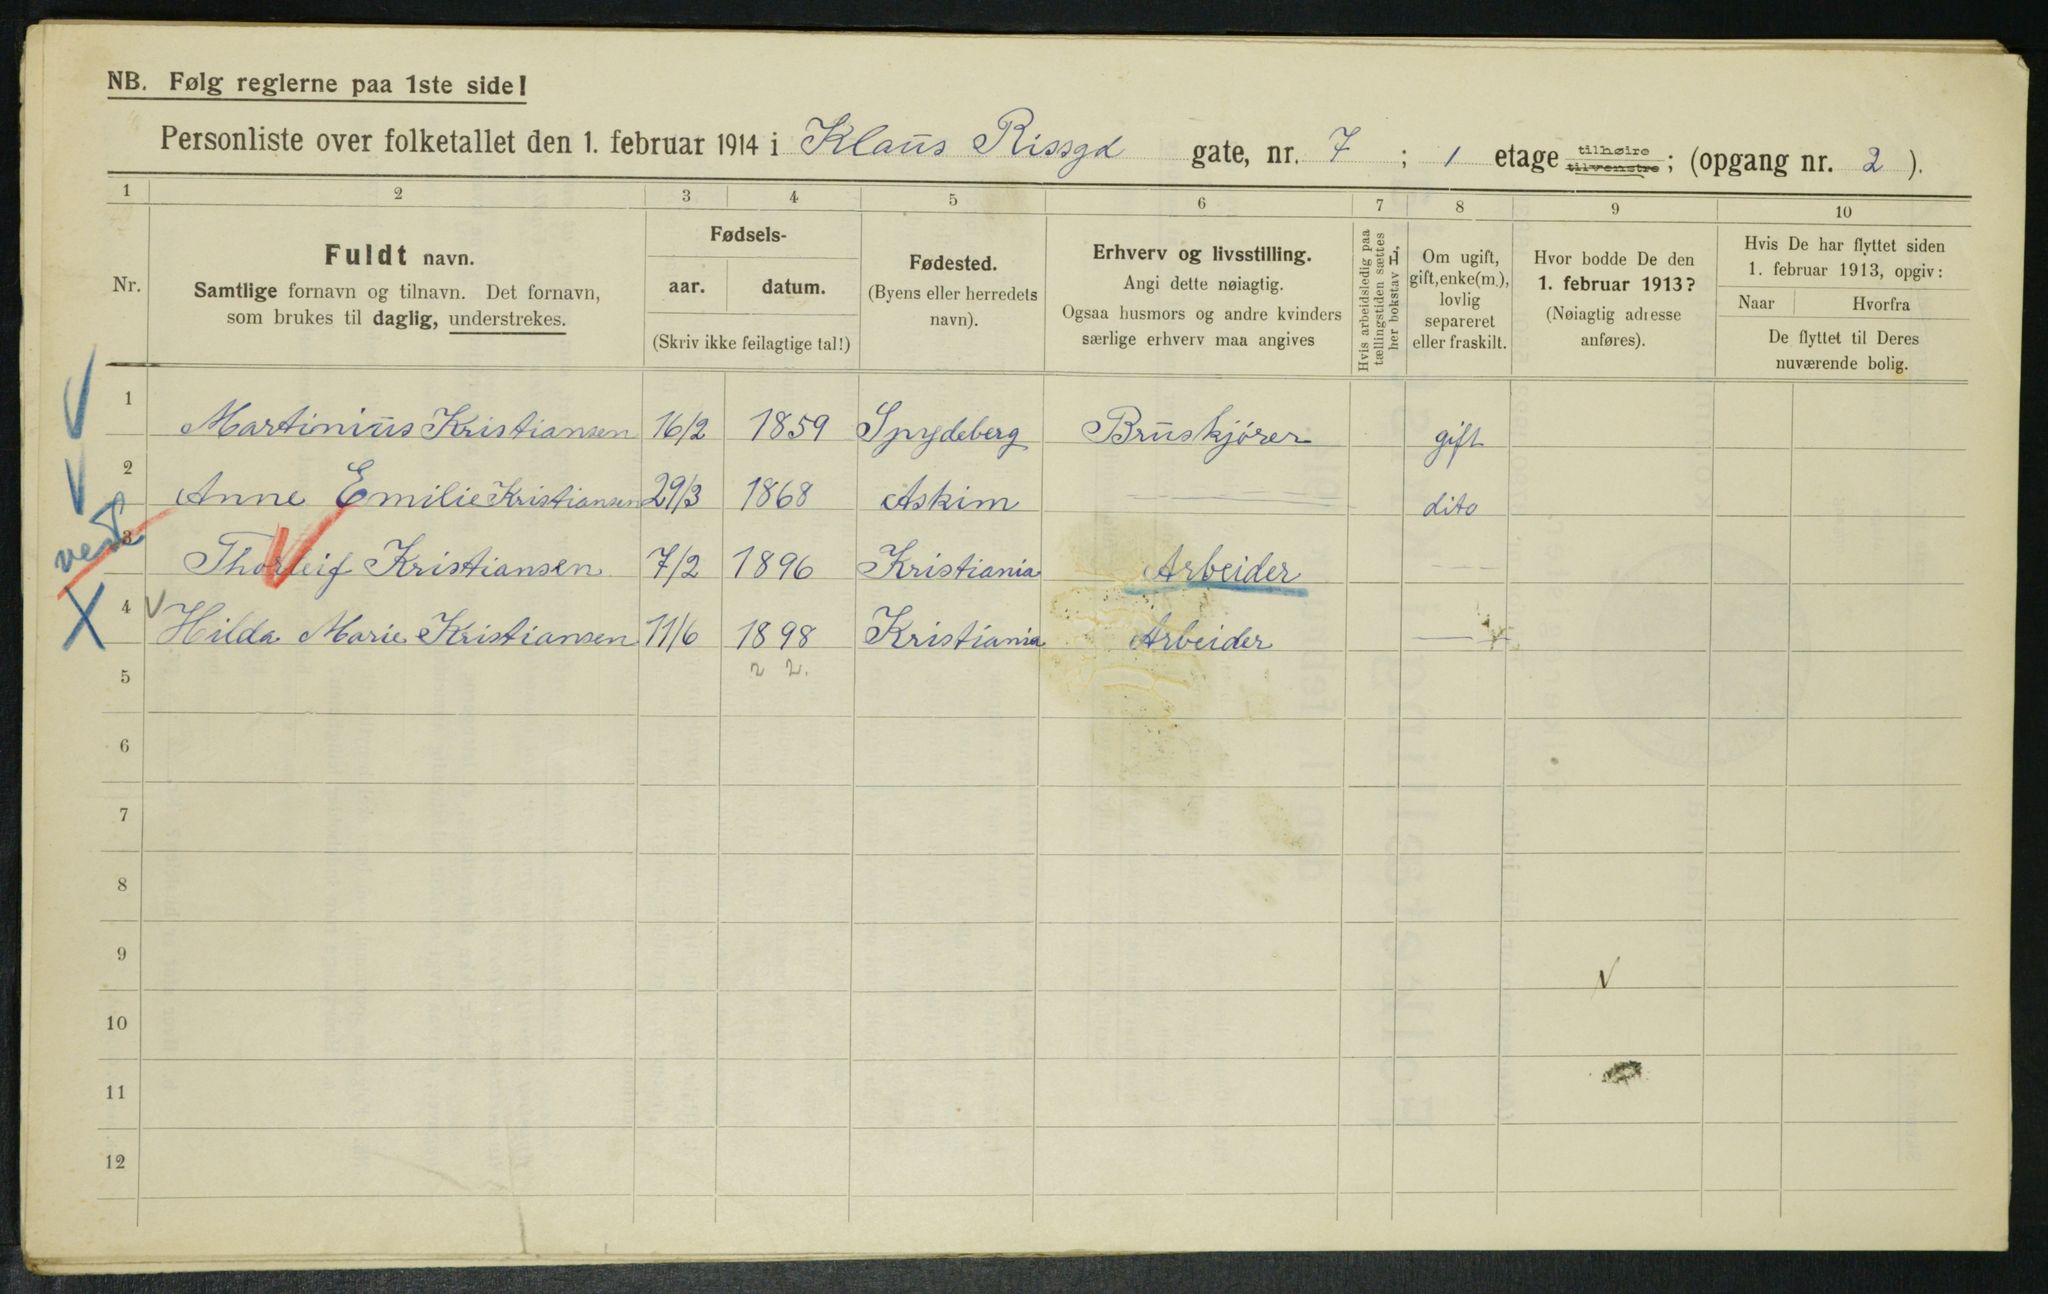 NB. Følg reglerne paa 1ste side!
Personliste over folketallet den 1. februar 1914 i Klaus Rissgd gate, nr. 7 ; 1 etage tilhøire tilvenstre ; (opgang nr. 2 ).
1 2 3 4 5 6 7 8 9 10
Nr.
Fuldt navn.
Samtlige fornavn og tilnavn. Det fornavn,
som brukes til daglig, understrekes.
Fødsels-
aar. datum.
(Skriv ikke feilagtige tal!)
Fødested.
(Byens eller herredets
navn).
Erhverv og livsstilling.
Angi dette nøiagtig.
Ogsaa husmors og andre kvinders
særlige erhverv maa angives
Hvis arbeidsledig paa
tællingstiden sættes
her bokstav L,
Om ugift,
gift, enke(m.),
lovlig
separeret
eller fraskilt.
Hvor bodde De den
1. februar 1913?
(Nøiagtig adresse
anføres).
Hvis De har flyttet siden
1. februar 1913, opgiv:
Naar Hvorfra
De flyttet til Deres
nuværende bolig.
1 Martinius Kristiansen 16/2 1859 Spydeberg Bruskjører gift
2 Anne Emilie Kristiansen 29/3 1868 Askim dito
3 Thorleif Kristiansen 7/2 1896 Kristiania Arbeider
4 Hilda Marie Kristiansen 11/6 1898 Kristiania Arbeider
5
6
7
8
9
10
11
12